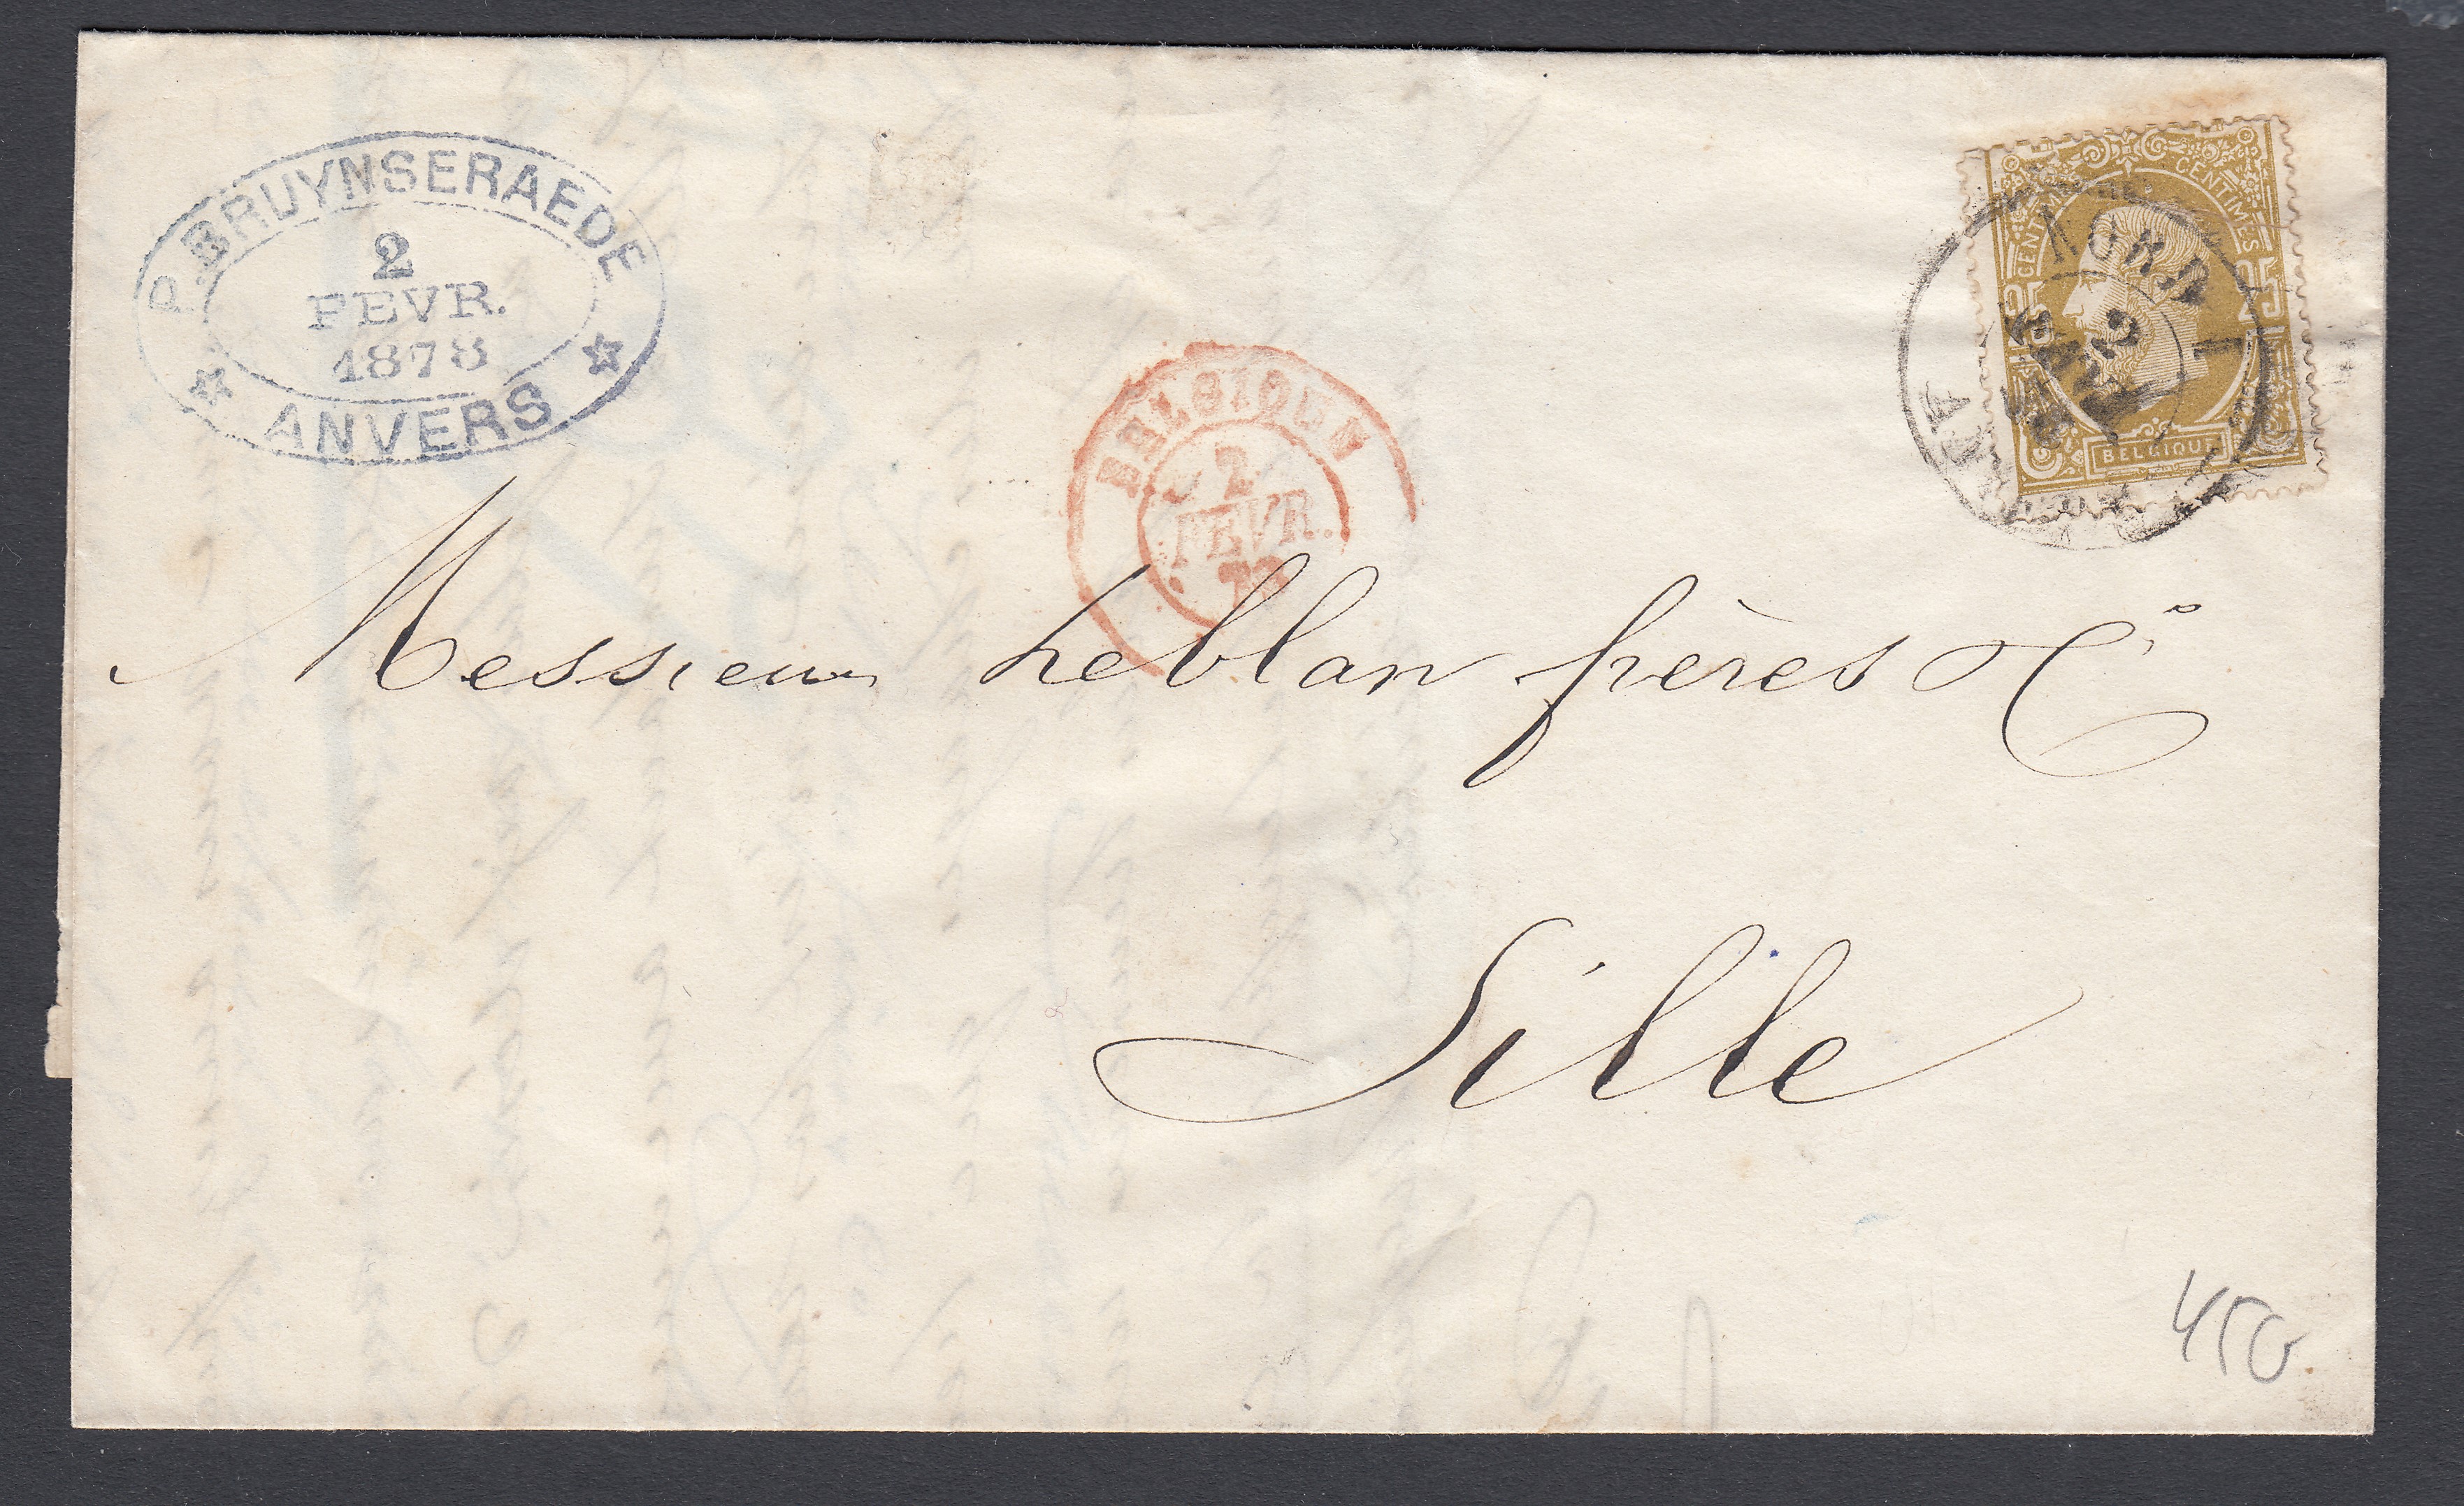 P. BRUYNSERAEDE
2
FEVR.
1878
ANVERS
CENTIMES CENTIMES
25 25
BELGIQUE
NORD 1
2
BELGIQUE
2
FEVR.
78
Messieurs Leblan frères & Cie
Lille
450